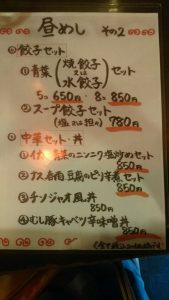 昼めし その2
◎餃子セット
①青菜(焼餃子 又は 水餃子)セット
5コ 650円・8コ 850円
②スープ餃子セット
(塩又は担々) 780円
◎中華セット・丼
青菜のニンニク塩炒めセット
850円
②ナス 豆腐のピリ辛煮セット
850円
③チンジャオ風丼
850円
④むし豚キャベツ辛味噌丼
850円